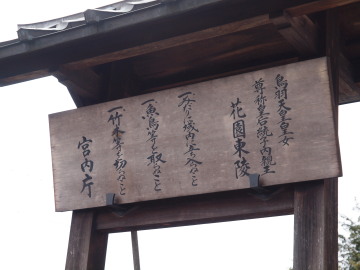 鳥羽天皇皇女
尊称皇后統子内親王
花園東陵
一みだりに域内に立入らぬこと
一魚鳥等を取らぬこと
一竹木等を切らぬこと
宮内庁